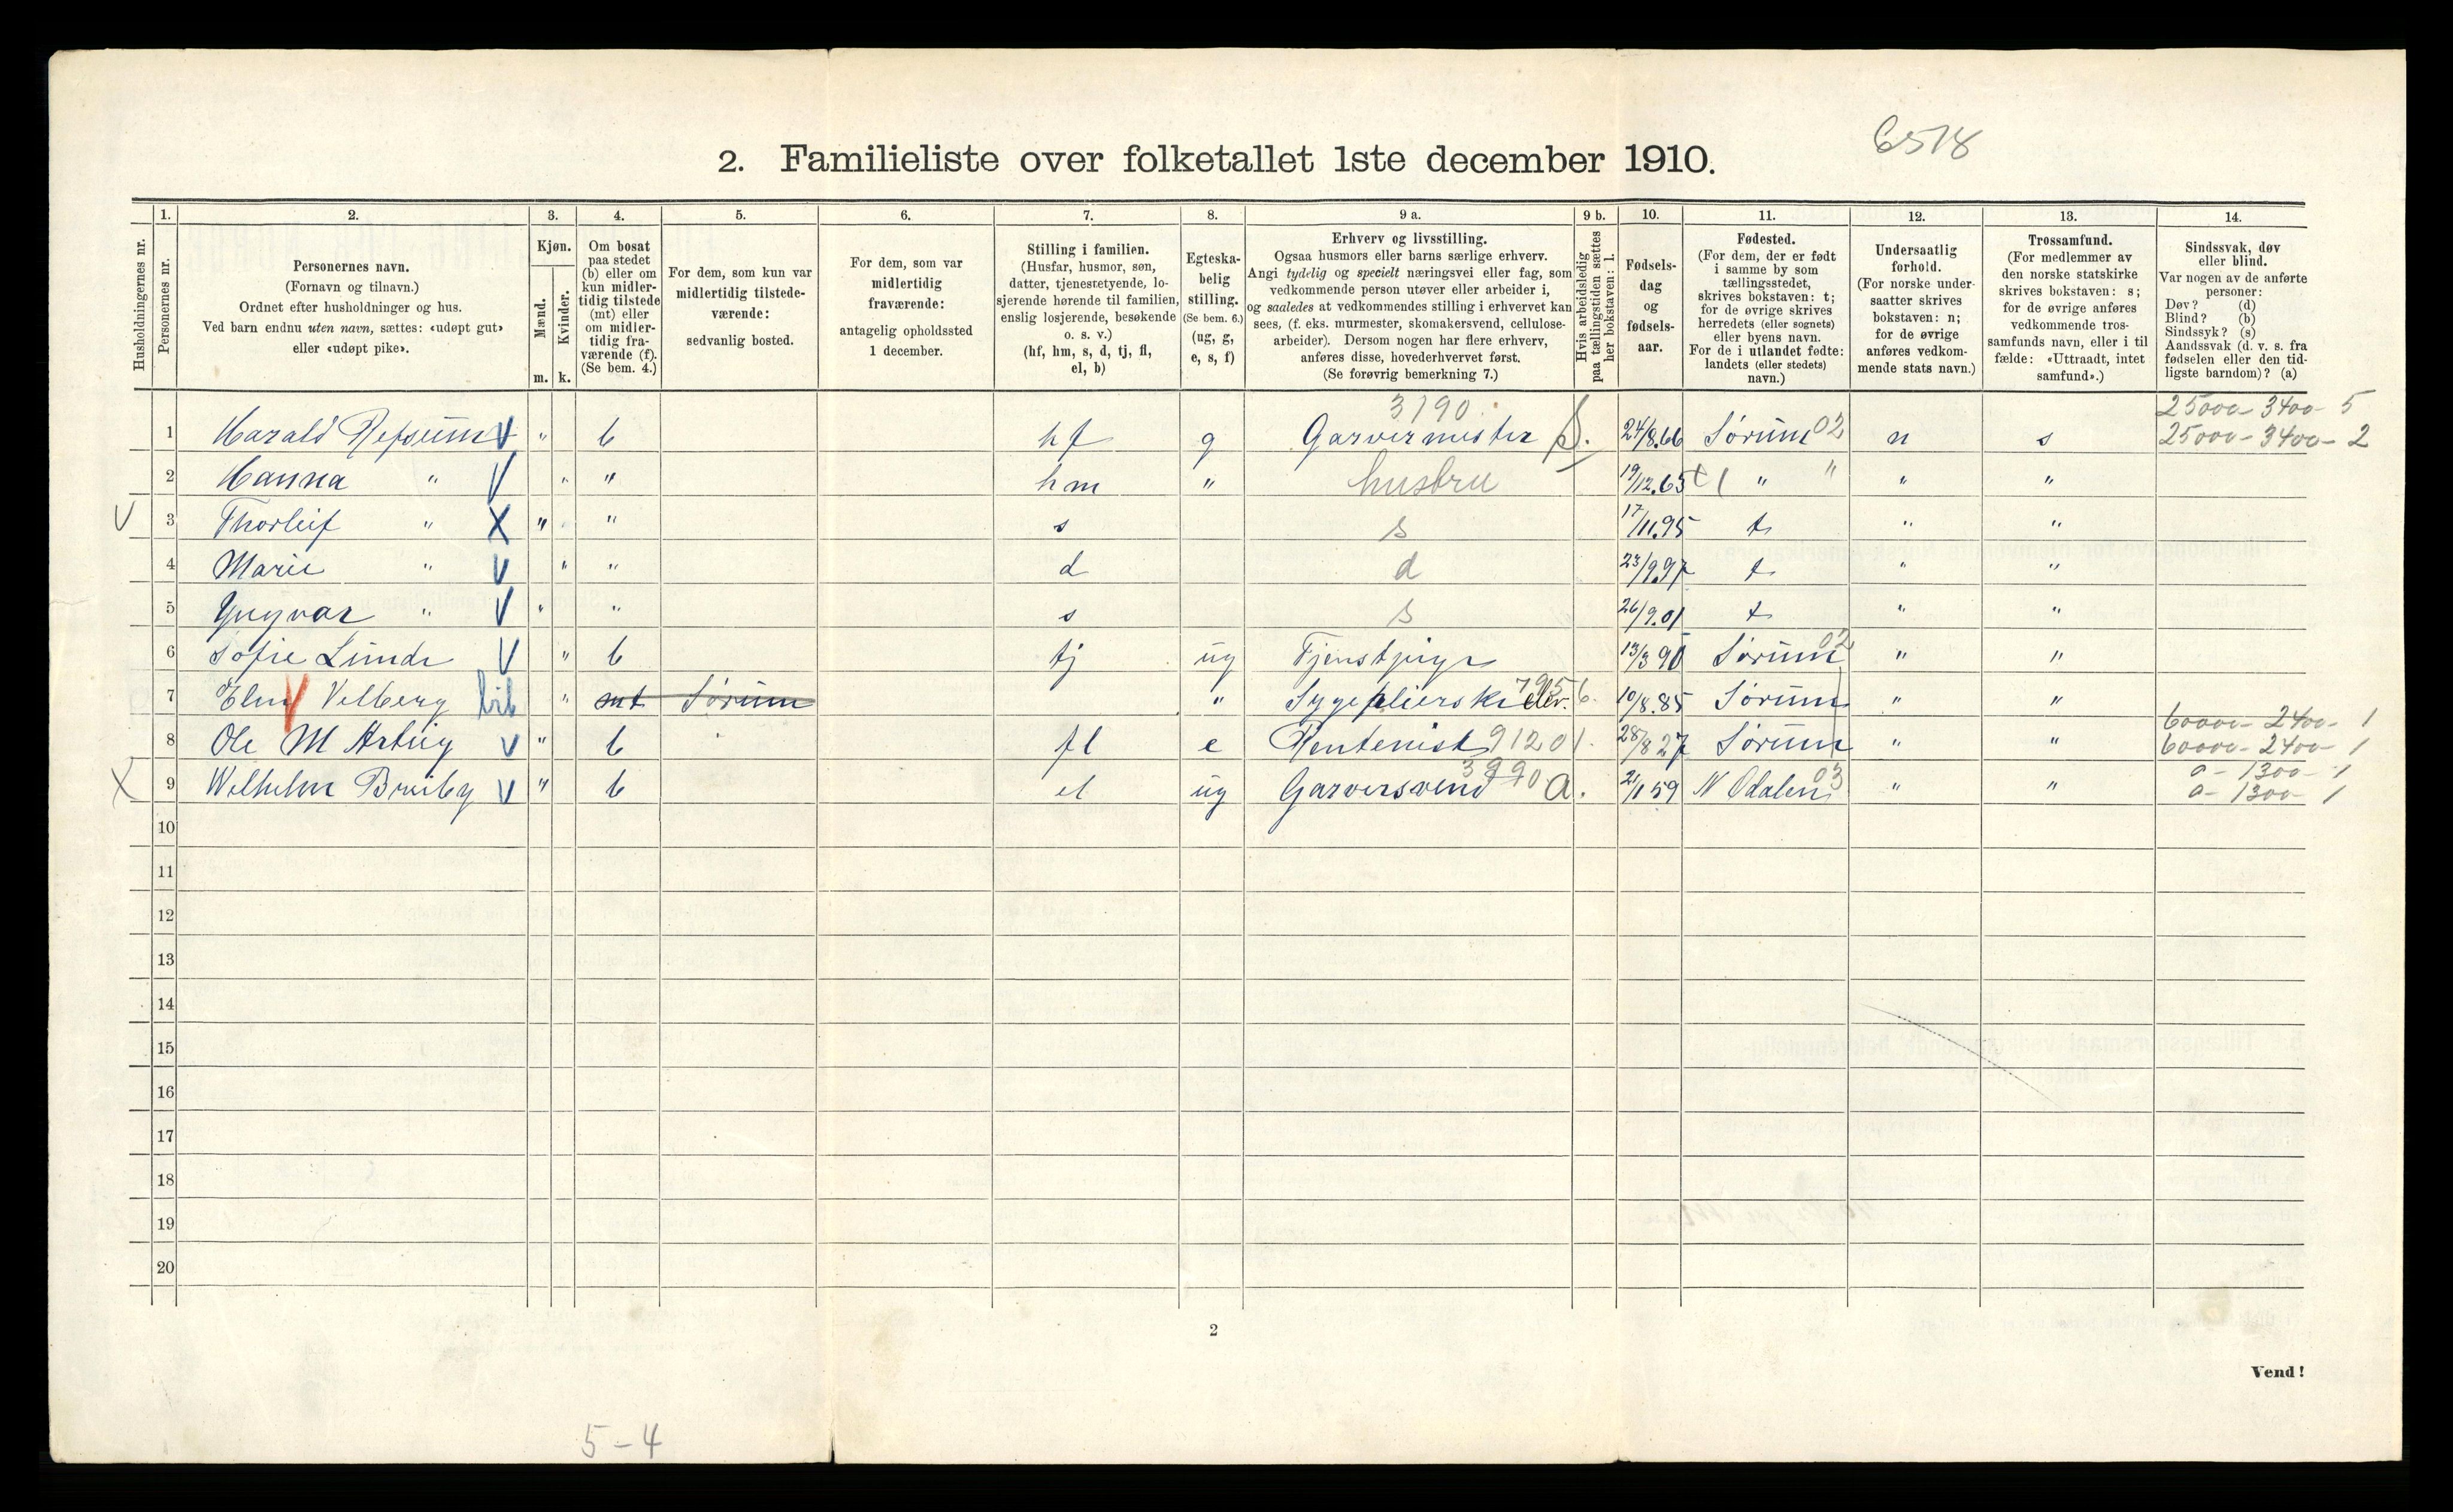 6518
2. Familieliste over folketallet 1ste december 1910.
1. 2. 3. 4. 5. 6. 7. 8. 9 a. 9 b. 10. 11. 12. 13. 14.
Husholdningernes nr.
Personernes nr.
Personernes navn.
(Fornavn og tilnavn.)
Ordnet efter husholdninger og hus.
Ved barn endnu uten navn, sættes: «udøpt gut»
eller «udøpt pike».
Kjøn.
Mænd.
Kvinder.
m. k.
Om bosat
paa stedet
(b) eller om
kun midler-
tidig tilstede
(mt) eller
om midler-
tidig fra-
værende (f).
(Se bem. 4.)
For dem, som kun var
midlertidig tilstede-
værende:
sedvanlig bosted.
For dem, som var
midlertidig
fraværende:
antagelig opholdssted
1 december.
Stilling i familien.
(Husfar, husmor, søn,
datter, tjenestetyende, lo-
sjerende hørende til familien,
enslig losjerende, besøkende
o. s. v.)
(hf, hm, s, d, tj, fl,
el, b)
Egteska-
belig
stilling.
(Se bem. 6.)
(ug, g,
e, s, f)
Erhverv og livsstilling.
Ogsaa husmors eller barns særlige erhverv.
Angi tydelig og specielt næringsvei eller fag, som
vedkommende person utøver eller arbeider i,
og saaledes at vedkommendes stilling i erhvervet kan
sees, (f. eks. murmester, skomakersvend, cellulose-
arbeider). Dersom nogen har flere erhverv,
anføres disse, hovederhvervet først.
(Se forøvrig bemerkning 7.)
Hvis arbeidsledig
paa tællingstiden sættes
her bokstaven: l.
Fødsels-
dag
og
fødsels-
aar.
Fødested.
(For dem, der er født
i samme by som
tællingsstedet,
skrives bokstaven: t;
for de øvrige skrives
herredets (eller sognets)
eller byens navn.
For de i utlandet fødte:
landets (eller stedets)
navn.)
Undersaatlig
forhold.
(For norske under-
saatter skrives
bokstaven: n;
for de øvrige
anføres vedkom-
mende stats navn.)
Trossamfund.
(For medlemmer av
den norske statskirke
skrives bokstaven: s;
for de øvrige anføres
vedkommende tros-
samfunds navn, eller i til
fælde: «Uttraadt, intet
samfund».)
Sindssvak, døv
eller blind.
Var nogen av de anførte
personer:
Døv? (d)
Blind? (b)
Sindssyk? (s)
Aandssvak (d. v. s. fra
fødselen eller den tid-
ligste barndom)? (a)
3190 25000 - 3400 - 5
1 Harald Refsum V " b hf g Garvermester S. 24/8.66 Sørum 02 n s 25000 - 3400 - 2
2 Hanna " V " " hm " hustru 19/12.65 " " " "
V 3 Thorleif " X " " s s 17/11.95 t " "
4 Marie " V " " d d 23/9.97 t " "
5 Yngvar " V " " s s 26/9.01 t " "
6 Sofie Lunde V " b tj ug Tjenstpige 13/3 90 Sørum 02 " "
7 Velberg " mt Sørum " elev. 10/8.85 Sørum " "
60000 - 2400 - 1
8 Ole M V " b fl e Rentenist 91201. 28/8 27 Sørum " " 60000 - 2400 - 1
0 - 1300 - 1
X 9 Wilhelm V " b el ug Garversvend a. 21/1 59 N Odalen 03 " " 0 - 1300 - 1
10
11
12
13
14
15
16
17
18
19
20
2
Vend!
5-4